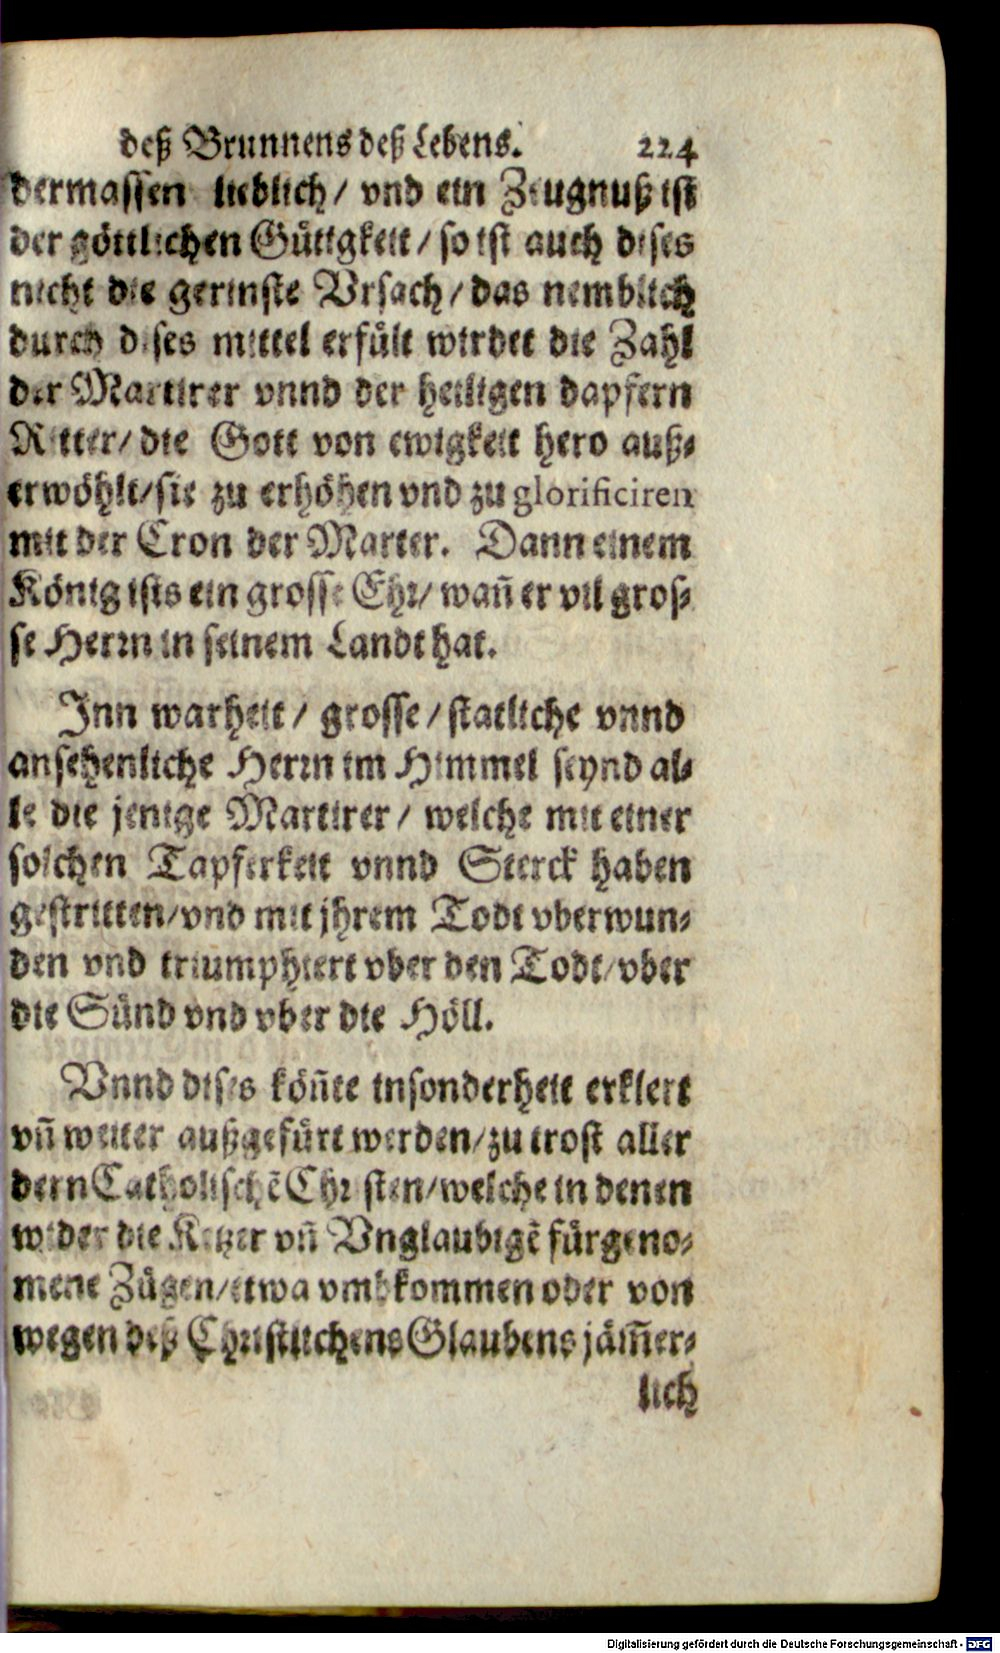 deß Brunnens deß Lebens. 224
dermassen lieblich/ vnd ein Zeugnuß ist
der göttlichen Gütigkeit/ so ist auch dises
nicht die gerinste Vrsach/ das nemblich
durch dises mittel erfült wirdet die Zahl
der Martirer vnnd der heiligen dapfern
Ritter/ die Gott von ewigkeit hero auß-
erwöhlt/ sie zu erhöhen vnd zu glorificiren
mit der Cron der Marter. Dann einem
König ists ein grosse Ehr/ wañ er vil gros-
se Herrn in seinem Landt hat.
Inn warheit/ grosse/ statliche vnnd
ansehenliche Herrn im Himmel seynd al-
le die jenige Martirer/ welche mit einer
solchen Tapferkeit vnnd Sterck haben
gestritten/ vnd mit jhrem Todt vberwun-
den vnd triumphiert vber den Todt/ vber
die Sünd vnd vber die Höll.
Vnnd dises köñte insonderheit erklert
vñ weiter außgefürt werden/ zu trost aller
dern Catholischẽ Christen/ welche in denen
wider die Ketzer vñ Vnglaubigẽ fürgeno-
mene Zügen/ etwa vmbkommen oder von
wegen deß Christlichens Glaubens jäm̃er-
lich
Digitalisierung gefördert durch die Deutsche Forschungsgemeinschaft - DFG